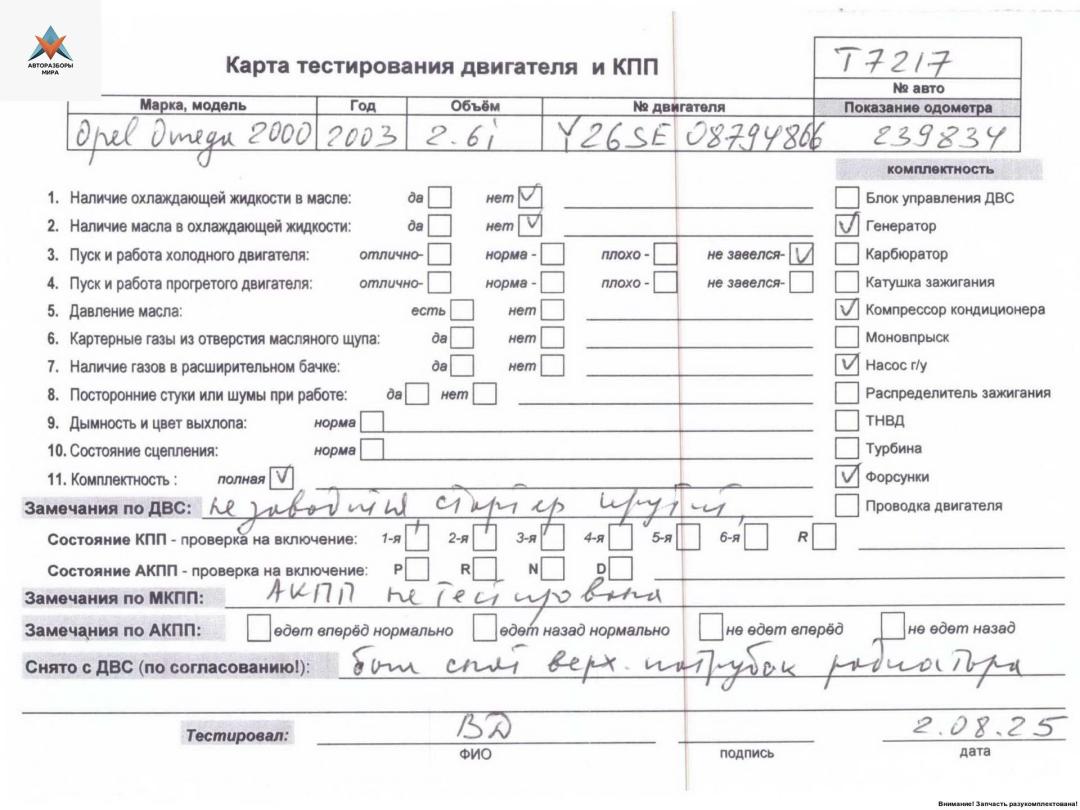 АВТОРАЗБОРЫ
МИРА
Карта тестирования двигателя и КПП
T7217
№ авто
Марка, модель Год Объём № двигателя Показание одометра
Opel Omega 2000 2003 2.6i Y26SE 08794866 239834
комплектность
1. Наличие охлаждающей жидкости в масле: да нет ✓ Блок управления ДВС
2. Наличие масла в охлаждающей жидкости: да нет ✓ ✓ Генератор
3. Пуск и работа холодного двигателя: отлично- норма - плохо - не завелся- ✓ Карбюратор
4. Пуск и работа прогретого двигателя: отлично- норма - плохо - не завелся- Катушка зажигания
5. Давление масла: есть нет ✓ Компрессор кондиционера
6. Картерные газы из отверстия масляного щупа: да нет Моновпрыск
7. Наличие газов в расширительном бачке: да нет ✓ Насос г/у
8. Посторонние стуки или шумы при работе: да нет Распределитель зажигания
9. Дымность и цвет выхлопа: норма ТНВД
10. Состояние сцепления: норма Турбина
11. Комплектность : полная ✓ ✓ Форсунки
Замечания по ДВС: не заводится, стартер крутит, Проводка двигателя
Состояние КПП - проверка на включение: 1-я 2-я 3-я 4-я 5-я 6-я R
Состояние АКПП - проверка на включение: P R N D
Замечания по МКПП: АКПП не тестирована
Замечания по АКПП: едет вперёд нормально едет назад нормально не едет вперёд не едет назад
Снято с ДВС (по согласованию!): был снят верх. патрубок радиатора
Тестировал: ВД 2.08.25
ФИО подпись дата
Внимание! Запчасть разукомплектована!